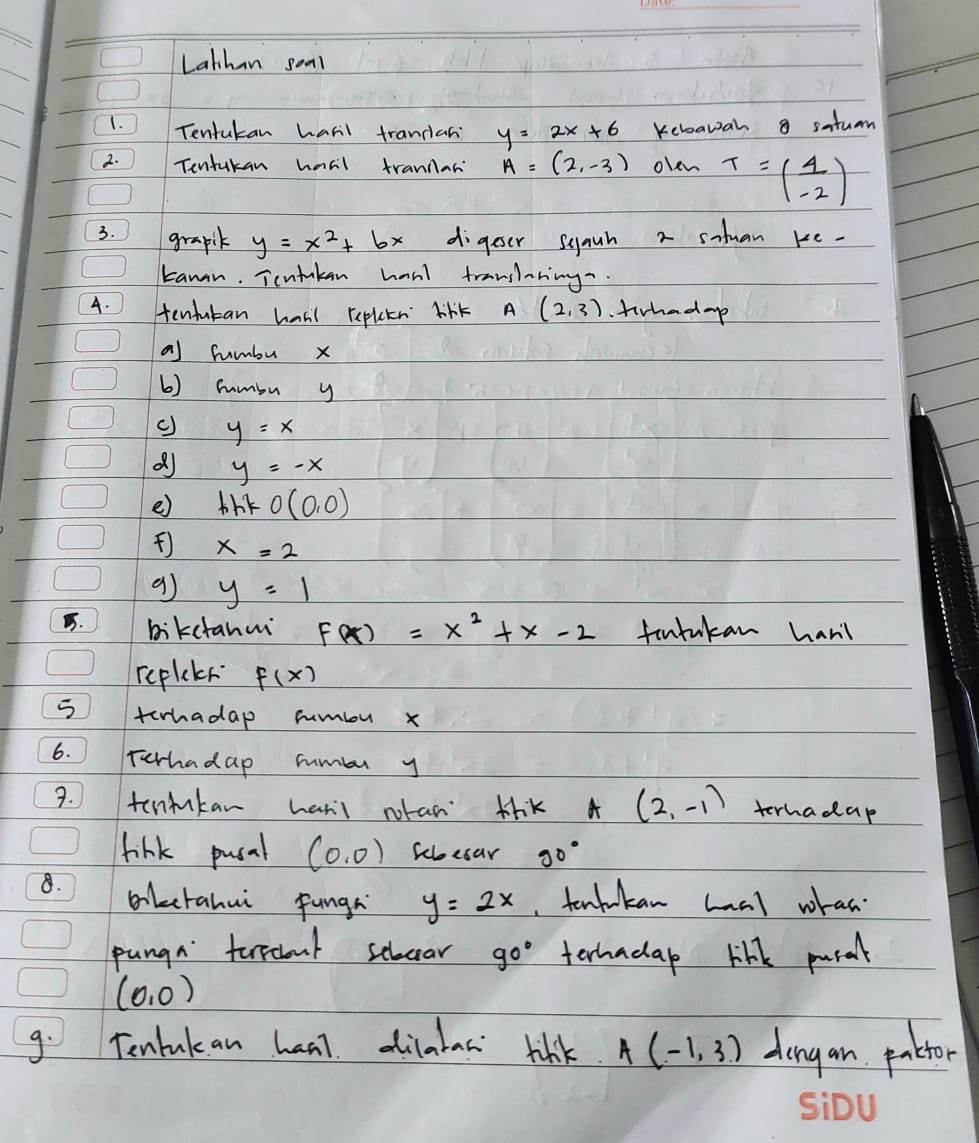 Date:
Latihan soal
1. Tentukan hasil translasi y = 2x + 6 kebawah 8 satuan
2. Tentukan hasil translasi A = (2,-3) oleh T = (4 -2)
3. grapik y = x² + 6x di geser sejauh 2 satuan ke-
kanan. Tentukan hasil translasinya.
4. tentukan hasil repleksi titik A (2,3). terhadap
a) sumbu x
b) sumbu y
c) y = x
d) y = -x
e) titik O(0,0)
f) x = 2
g) y = 1
5. Diketahui F(x) = x² + x - 2 tentukan hasil
repleksi F(x)
5 terhadap sumbu x
6. Terhadap sumbu y
7. tentukan hasil rotasi titik A (2,-1) terhadap
titik pusat (0,0) sebesar 90°
8. Diketahui fungsi y = 2x, tentukan hasil rotasi
pungsi tersebut sebesar 90° terhadap titik pusat
(0,0)
9. Tentukan hasil dilatasi titik A (-1,3) dengan paktor
SiDU